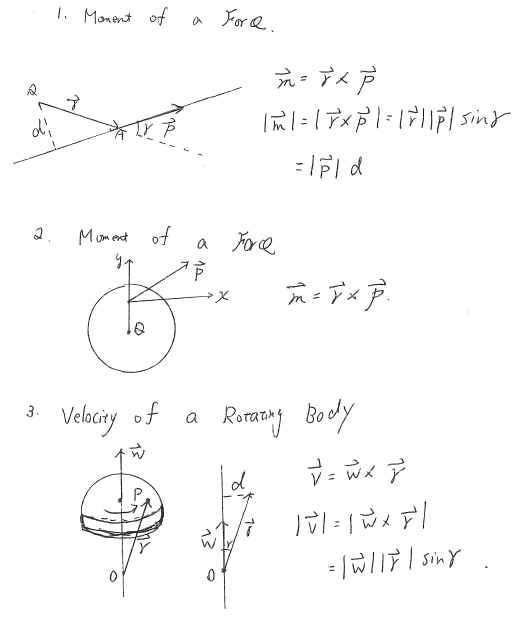 1. Moment of a Force.
Q
r⃗
d
A
γ
p⃗
m⃗ = r⃗ × p⃗
|m⃗| = |r⃗ × p⃗| = |r⃗||p⃗| sinγ
= |p⃗| d
2. Moment of a Force
y
p⃗
x
Q
m⃗ = r⃗ × p⃗.
3. Velocity of a Rotating Body
w⃗
P
r⃗
O
d
w⃗
γ
r⃗
O
v⃗ = w⃗ × r⃗
|v⃗| = |w⃗ × r⃗|
= |w⃗||r⃗| sinγ.